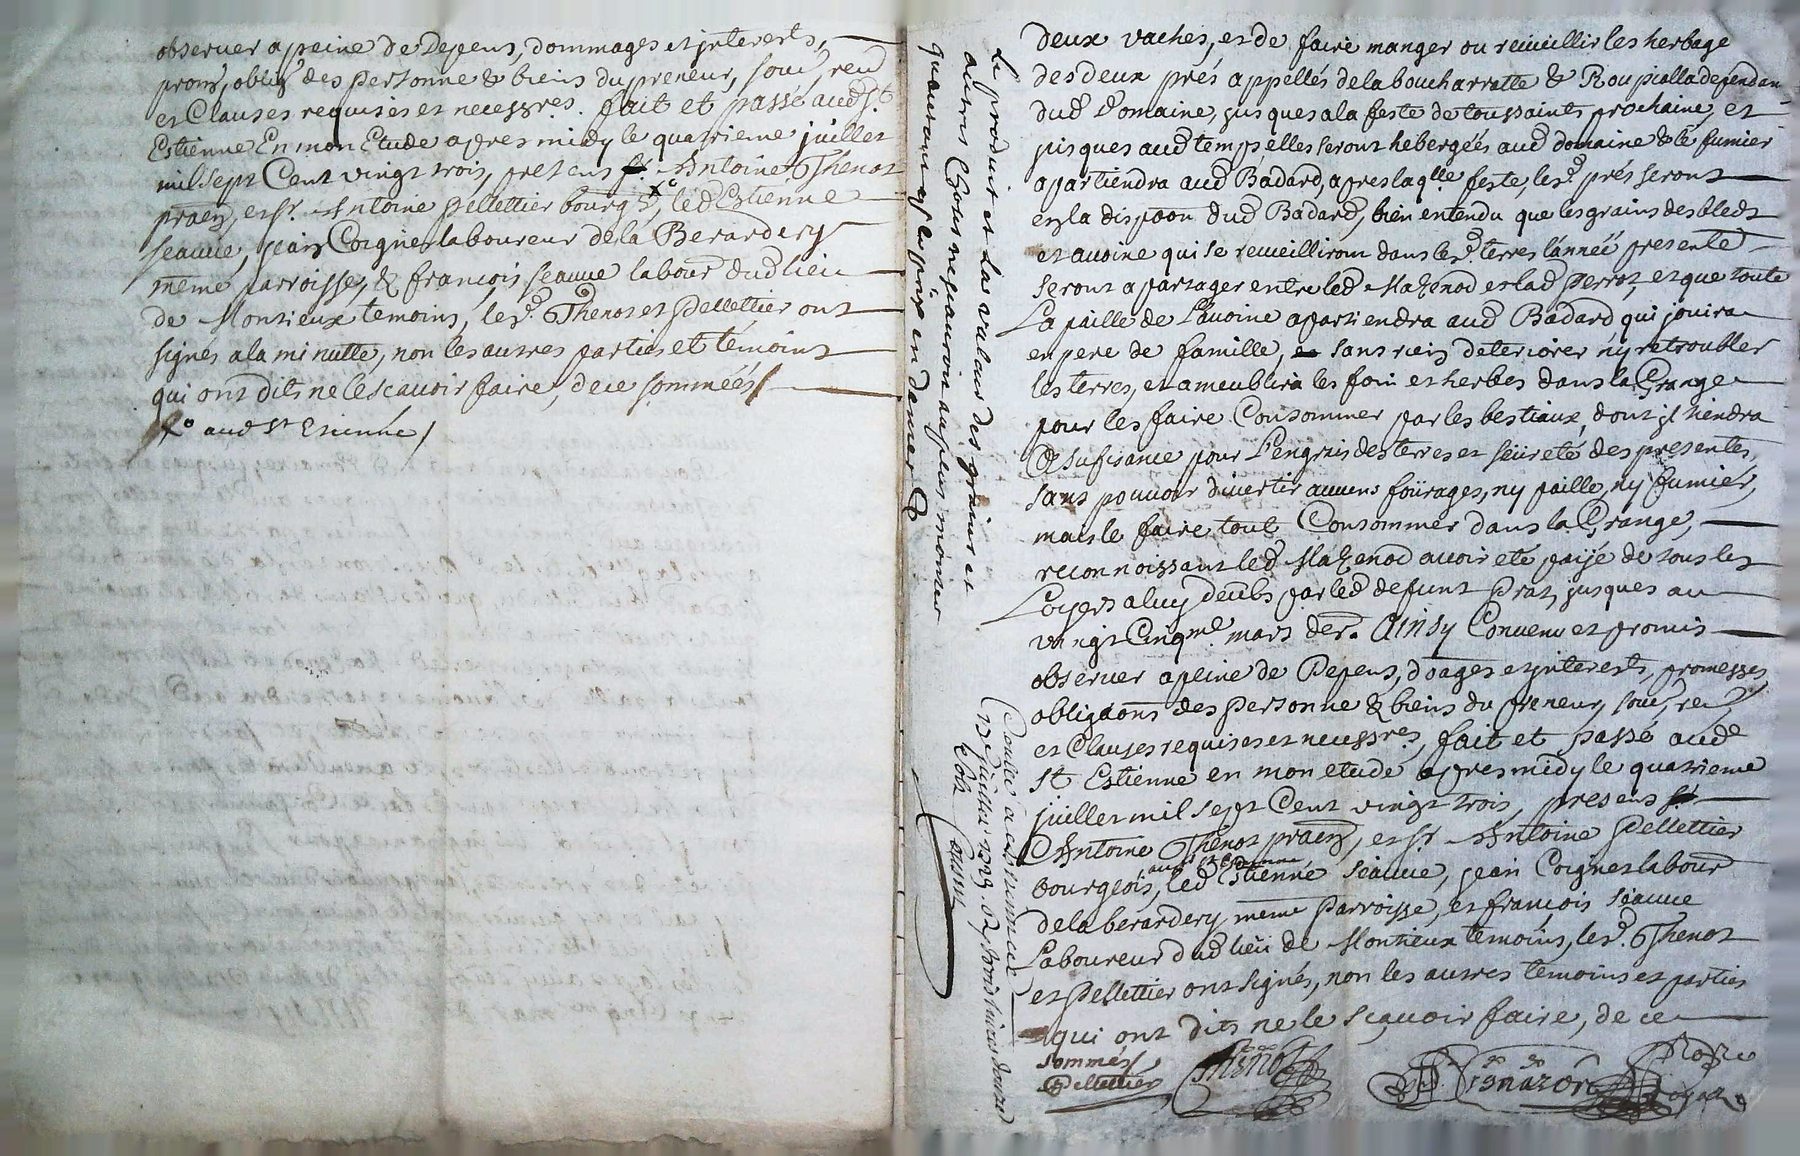 observer a peine de Depens, dommages et jnterests,
prom, oblig des personne & biens du preneur, soum, ren
et Clauses requises et necessres. fait et passé aud St
Estienne En mon Etude apres midy le quatrieme juillet
mil sept Cent vingt trois, presens Antoine Thenot
pratn, et Sr. Antoine Pellettier bourgs x°, led Estienne
seauve, jean Coignet laboureur de la Berardery
même parroisse, & françois seauve labourr dud lieu
de Montieux temoins, lesd. Thenot et Pellettier ont
signés a la minutte, non les autres parties et témoins
qui ont dits ne le scavoir faire, de ce sommées /
x° aud St Etienne /
Le produit et la valeur des grains et
autres choses ne pouvoir au plus monter
qu'autant q le prix en denier
deux vaches, et de faire manger ou receuillir les herbage
des deux prés appellés de la boucharratte & Roupialla dependan
dud Domaine, jusques a la feste de toussaints prochaine, et
jusques aud temps elles seront hébergées aud domaine & le fumier
apartiendra aud Badard, apres laqlle feste, lesd. prés seront
en la dispoon dud Badard, bien entendu que les grains des bleds
et avoine qui se recueilliront dans lesd. terres l'année presente
seront a partager entre led Mazenod et lad Perrot, et que toute
La paille de L'avoine apartiendra aud Badard qui jouira
en pere de famille, sans rien deteriorer ny retroubler
les terres, et ameublira les foin et herbes dans la Grange
pour les faire Consommer par les bestiaux, dont jl tiendra
a sufisance pour L'engrais des terres et seüreté des presentes,
sans pouvoir divertir aucuns foürages, ny paille, ny fumier,
mais le faire tout Consommer dans la Grange,
reconnoissant led Mazenod avoir eté payé de tous les
Loyers a luy deubs par led defunt Prat, jusques au
vingt Cinqme mars der. Ainsy Convenu et promis
observer a peine de Depens, doages et jnterests, promesses,
obligaons des personne & biens du preneur, soum, ren
et Clauses requises et necessres, fait et passé aud
St Estienne en mon etude apres midy le quatrieme
juillet mil sept Cent vingt trois, presens
Antoine Thenot pratn, et Sr. Antoine Pellettier
bourgeois, aud St Estienne led Estienne seauve, jean Coignet labourr
de la berardery même parroisse, et françois seauve
Laboureur dud lieu de Montieux temoins, lesd. Thenot
et Pellettier ont signés, non les autres temoins et parties
qui ont dits ne le sçavoir faire, de ce
sommés
Pellettier
Thenot
Controllé a St Estienne ce
12e juillet 1723. reçu trois livres douze
sols
Cousin